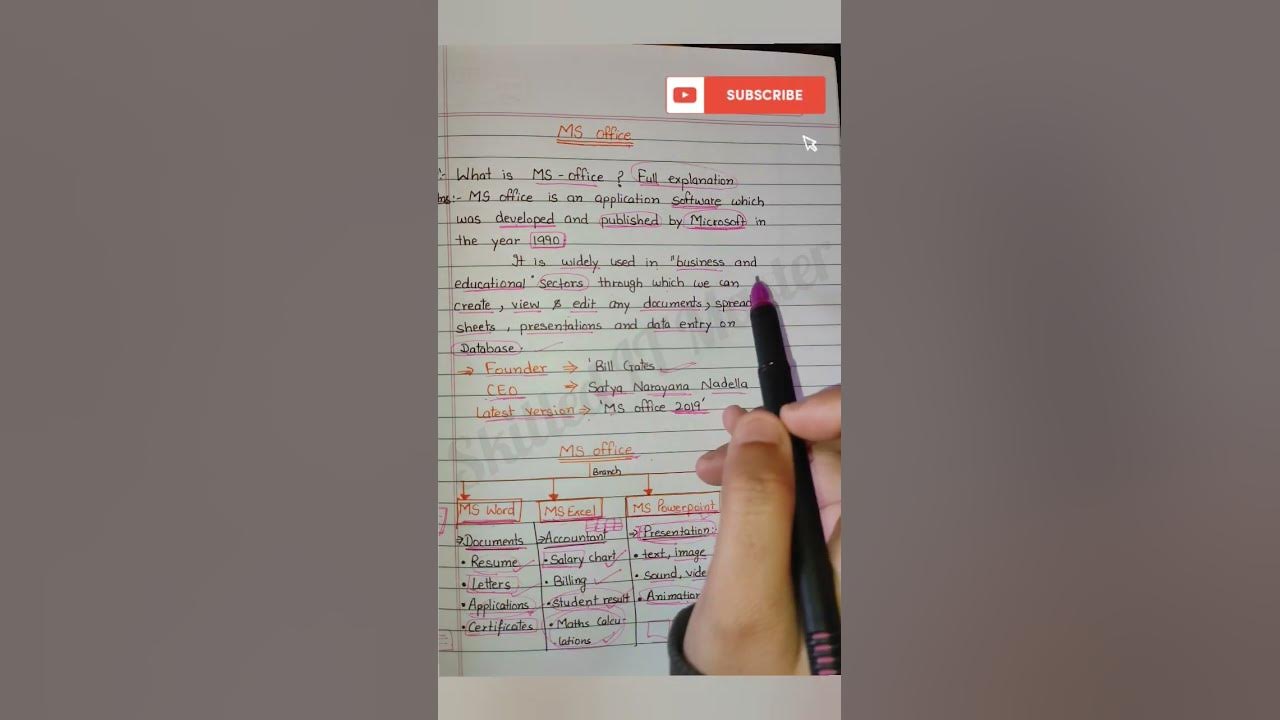 SUBSCRIBE
MS office
:- What is MS-office ? Full explanation
Ans:- MS office is an application software which
was developed and published by Microsoft in
the year 1990
It is widely used in "business and
educational" sectors through which we can
create, view & edit any documents, spread
sheets, presentations and data entry on
Database.
⇒ Founder ⇒ 'Bill Gates
CEO ⇒ Satya Narayana Nadella
Latest version ⇒ 'MS office 2019'
Skilled IT
MS office
Branch
MS Word MS Excel MS Powerpoint
→ Documents → Accountant → Presentation:-
• Resume • Salary chart • text, image
• Letters • Billing • sound, vide
• Applications • Student result • Animation
• Certificates • Maths calcu-
lations